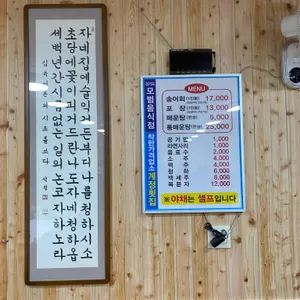 자네집에 술익거든 부디 나를 청하시소
초당에 꽃이 피거드란 나도 자네 청하옵
세 백년간 시름없는 일의 논코자 하노라
모범음식점
착한가격업소
계정횟집
MENU
송어회 17,000
포장 13,000
매운탕 5,000
통매운탕 25,000
공기밥 1,000
라면사리 1,000
음료수 2,000
소주 4,000
맥주 4,000
청하 6,000
백세주 8,000
복분자 12,000
※ 야채는 셀프입니다